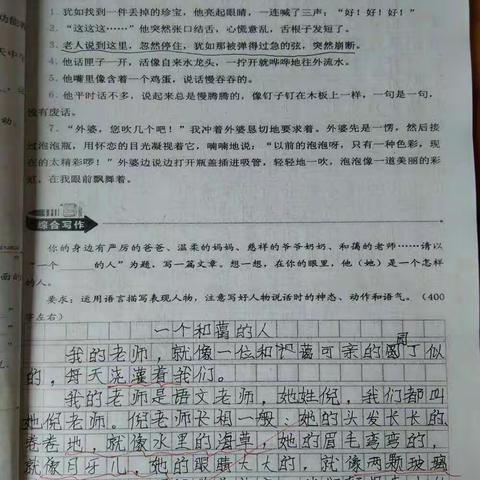 1. 犹如找到一件丢掉的珍宝，他亮起眼睛，一连喊了三声：“好！好！好！”
2. “这这这……”他突然张口结舌，心慌意乱，舌根子发短了。
3. 老人说到这里，忽然停住，犹如那被弹得过急的弦，突然崩断。
4. 他话匣子一开，活像自来水龙头，一拧开就哗哗地往外流水。
5. 他嘴里像含着一个鸡蛋，说话慢吞吞的。
6. 他平时话不多，说起来总是慢腾腾的，像钉子钉在木板上一样，一句是一句，
没有废话。
7. “外婆，您吹几个吧！”我冲着外婆恳切地要求着。外婆先是一愣，然后接
过泡泡瓶，用怀恋的目光凝视着它，喃喃地说：“以前的泡泡呀，只有一种色彩，现
在的太精彩啰！”外婆边说边打开瓶盖插进吸管，轻轻地一吹，泡泡像一道美丽的彩
虹，在我眼前飘舞着。
综合写作
你的身边有严厉的爸爸、温柔的妈妈、慈祥的爷爷奶奶、和蔼的老师……请以
“一个 的人”为题，写一篇文章。想一想，在你的眼里，他（她）是一个怎样
的人。
要求：运用语言描写表现人物，注意写好人物说话时的神态、动作和语气。（400
字左右）
一个和蔼的人
园
我的老师，就像一位和蔼可亲的丁似
的，每天浇灌着我们。
我的老师是语文老师，她姓倪，我们都叫
她倪老师。倪老师长相一般：她的头发长长的
卷卷地，就像水里的海草，她的眉毛弯弯的，
就像月牙儿，她的眼睛大大的，就像两颗玻璃